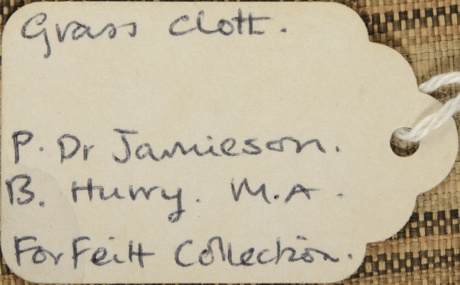 Grass Cloth.
P. Dr Jamieson.
B. Hurry. M.A.
For Feilt Collection.